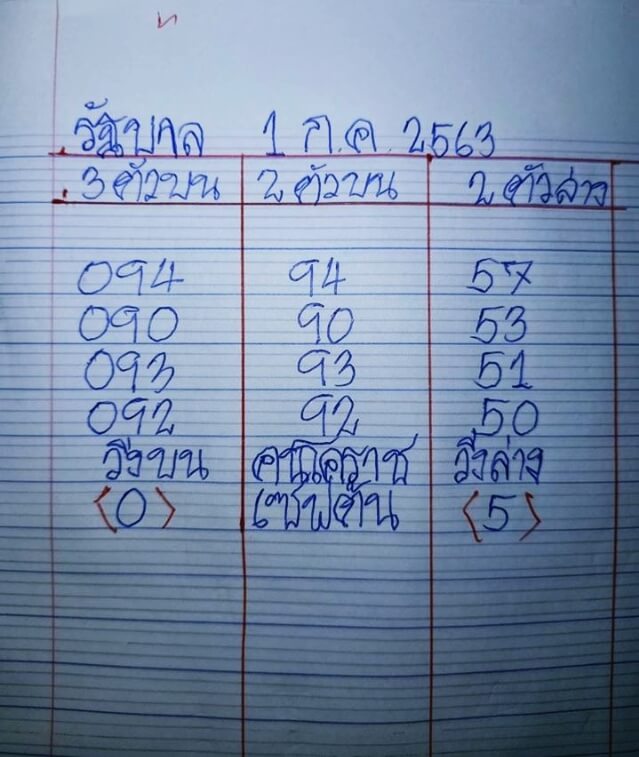 รัฐบาล 1 ก.ค. 2563
3 ตัวบน 2 ตัวบน 2 ตัวล่าง
094 94 57
090 90 53
093 93 51
092 92 50
วิ่งบน คนโคราช วิ่งล่าง
<0> เซฟตัน <5>